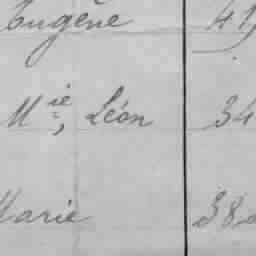 Eugène 41
Mie, Léon 34
Marie 38